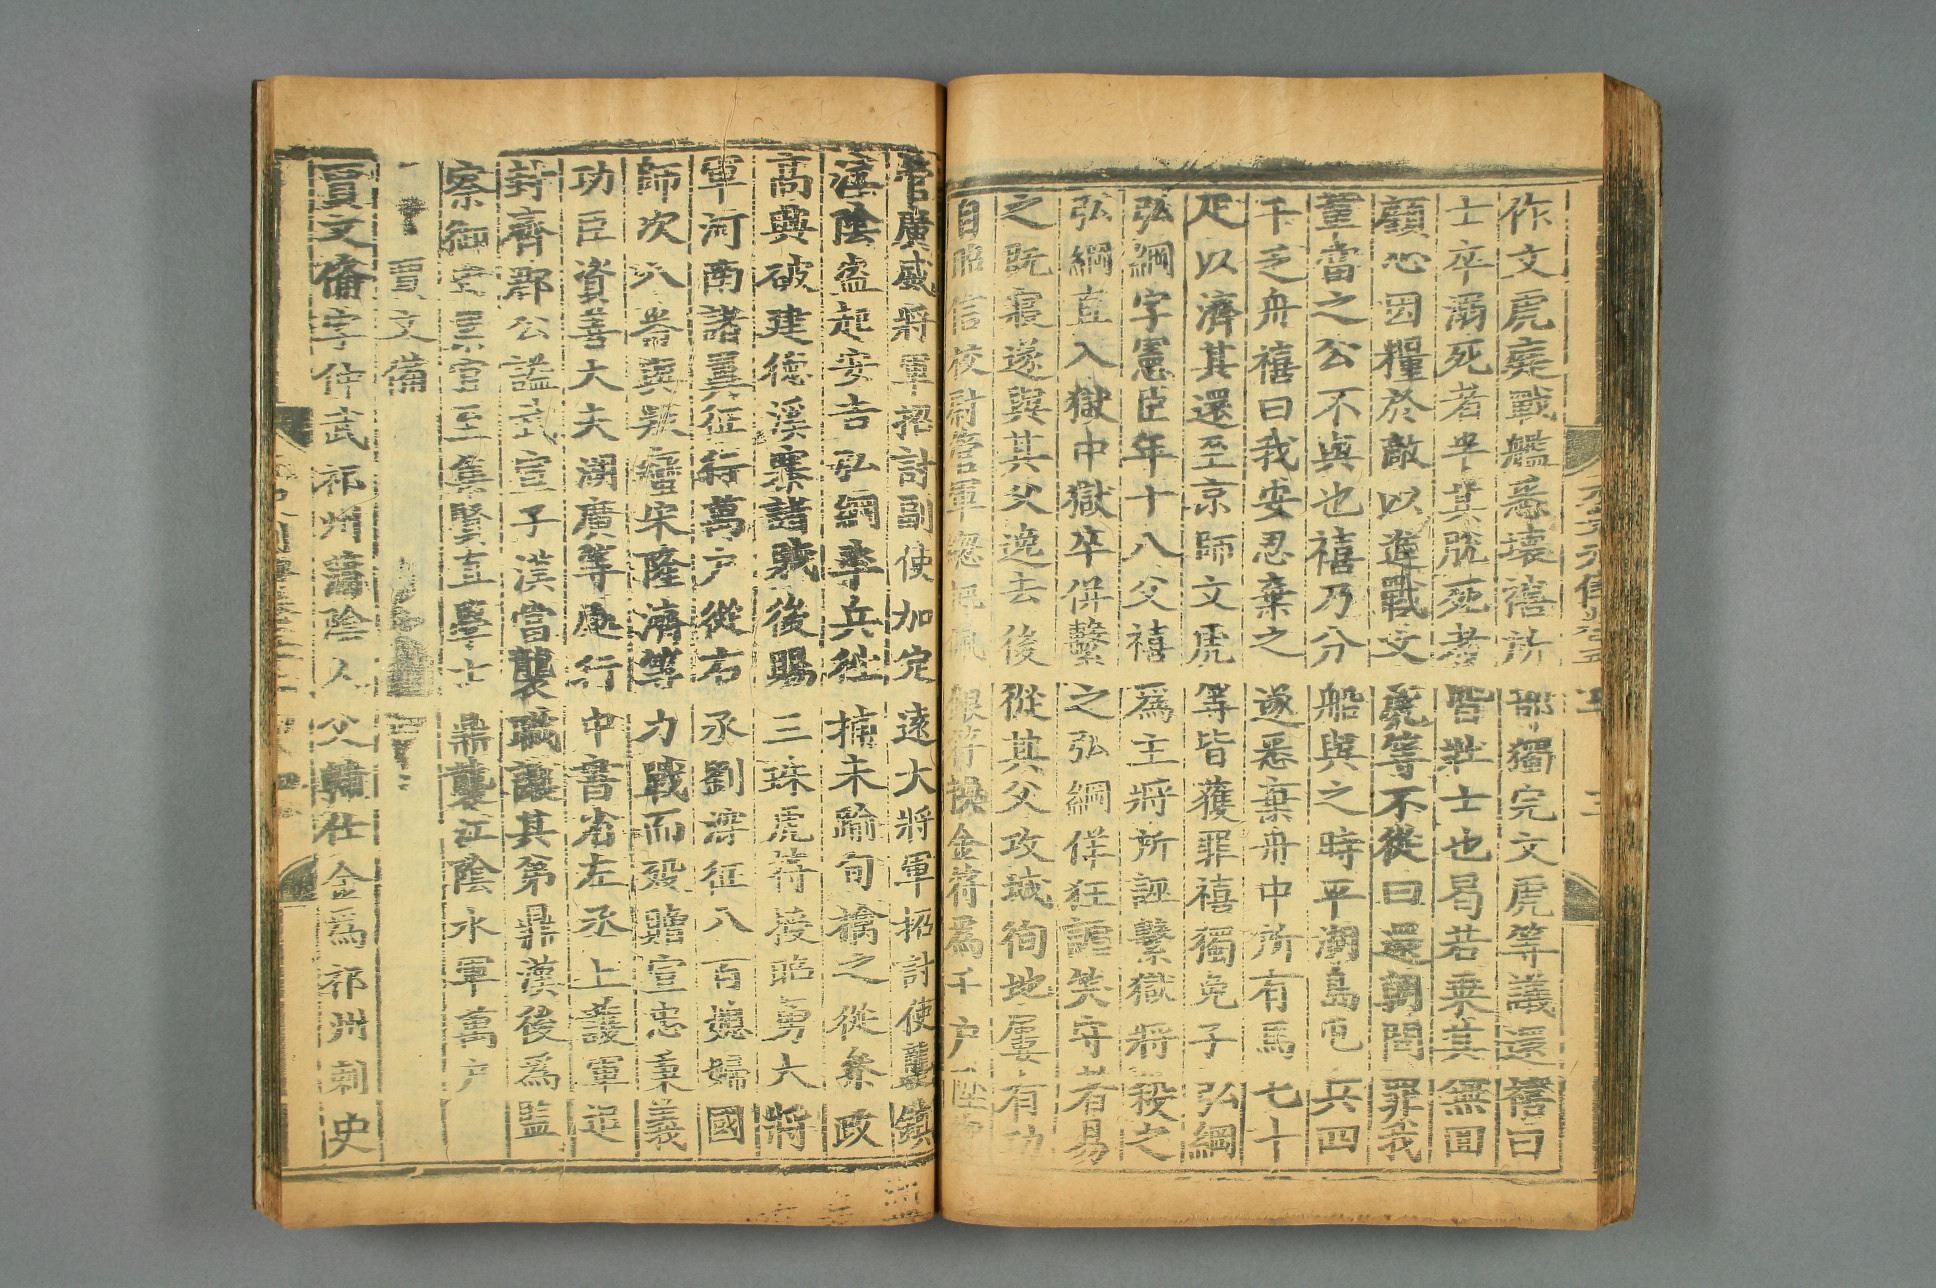 作文虎庭戰艦悉壞禧所部獨完文虎等議還禧曰
士卒溺死者半其脫死者皆壯士也曷若乗其無回
顧心因糧於敵以進戰文虎等不從曰還朝問罪我
輩當之公不與也禧乃分船與之時平湖島屯兵四
千乏舟禧曰我安忍棄之遂悉棄舟中所有馬七十
疋以濟其還至京師文虎等皆獲罪禧獨免子弘綱
弘綱字憲臣年十八父禧爲主將所誣繫獄將殺之
弘綱直入獄中獄卒併繫之弘綱佯狂謔笑守者易
之既寢遂與其父逸去後從其父攻城徇地屢有功
自昭信校尉管軍總把 銀符換金符爲千户
管廣威將軍招討副使加定遠大將軍招討使襲鎮
江隂盗起安吉弘綱率兵往捕未踰旬擒之從叅政
高興破建德溪寨諸賊後賜三珠虎符授昭勇大將
軍河南諸翼征行萬户從右丞劉深征八百媳婦國
師次八番與叛蠻宋隆濟等力戰而殁贈宣忠秉義
功臣資善大夫湖廣等處行中書省左丞上護軍追
封齊郡公諡武宣子漢當襲職讓其弟鼎漢後爲監
察御史累官至集賢直學士鼎襲江隂水軍萬户
賈文備
賈文備字仲武祁州蒲隂人父輔仕金爲祁州刺史